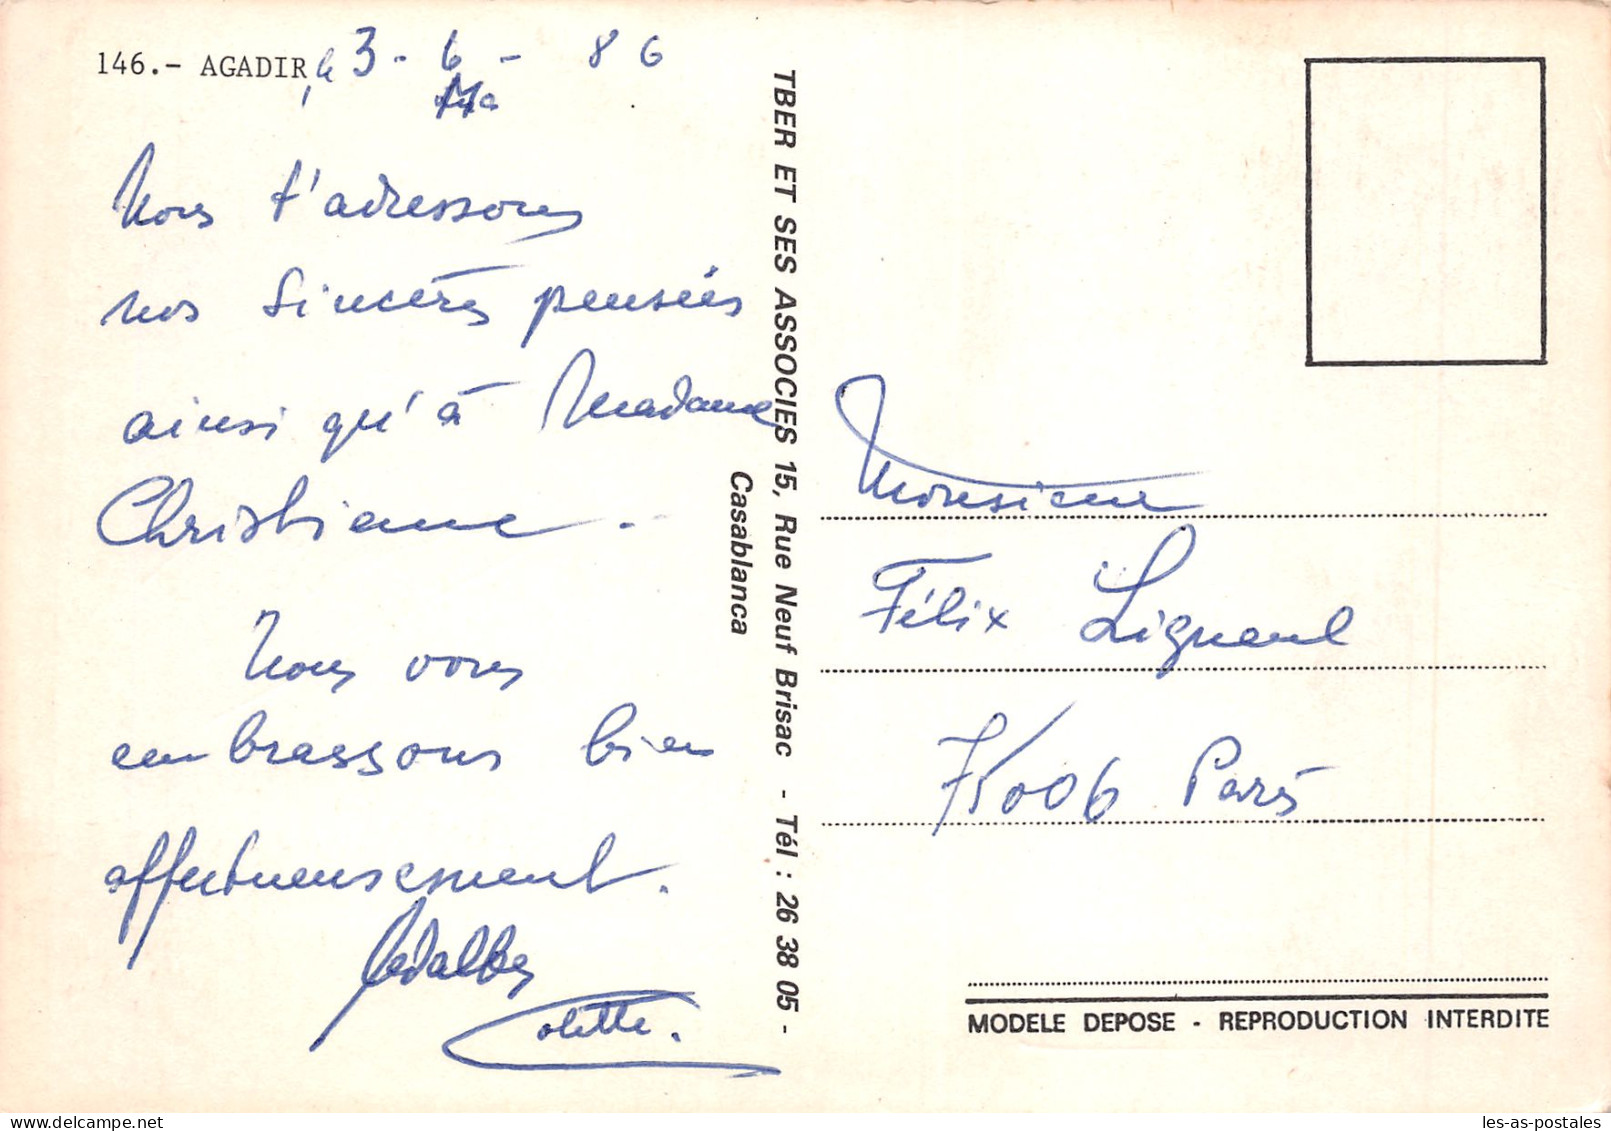 146.- AGADIR, le 3-6-86
Nous t'adressons
nos sincères pensées
ainsi qu'à Madame
Christiane.
Nous vous
embrassons bien
affectueusement.
Colette.
TBER ET SES ASSOCIES 15, Rue Neuf Brisac - Tél : 26 38 05 -
Casablanca
Monsieur
Félix Ligneul
75006 Paris
MODELE DEPOSE - REPRODUCTION INTERDITE
les-as-postales